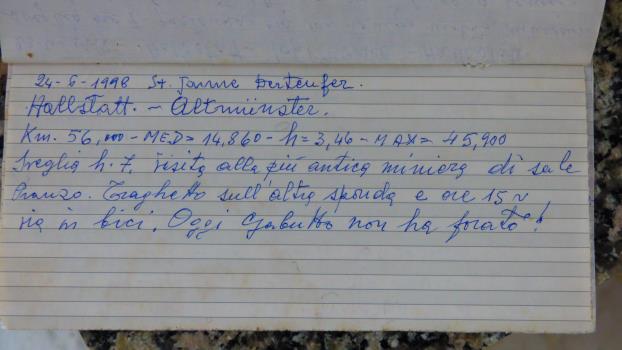 24-6-1998 St. Joanne Derteufer.
Hallstatt. - Altmünster.
Km. 56,000 - MED= 14,860 - h=3,46 - MAX= 45,900
Sveglia h. 7. Visita alla più antica miniera di sale
Pranzo. Traghetto sull'altra sponda e ore 15
via in bici. Oggi Gabutto non ha forato!